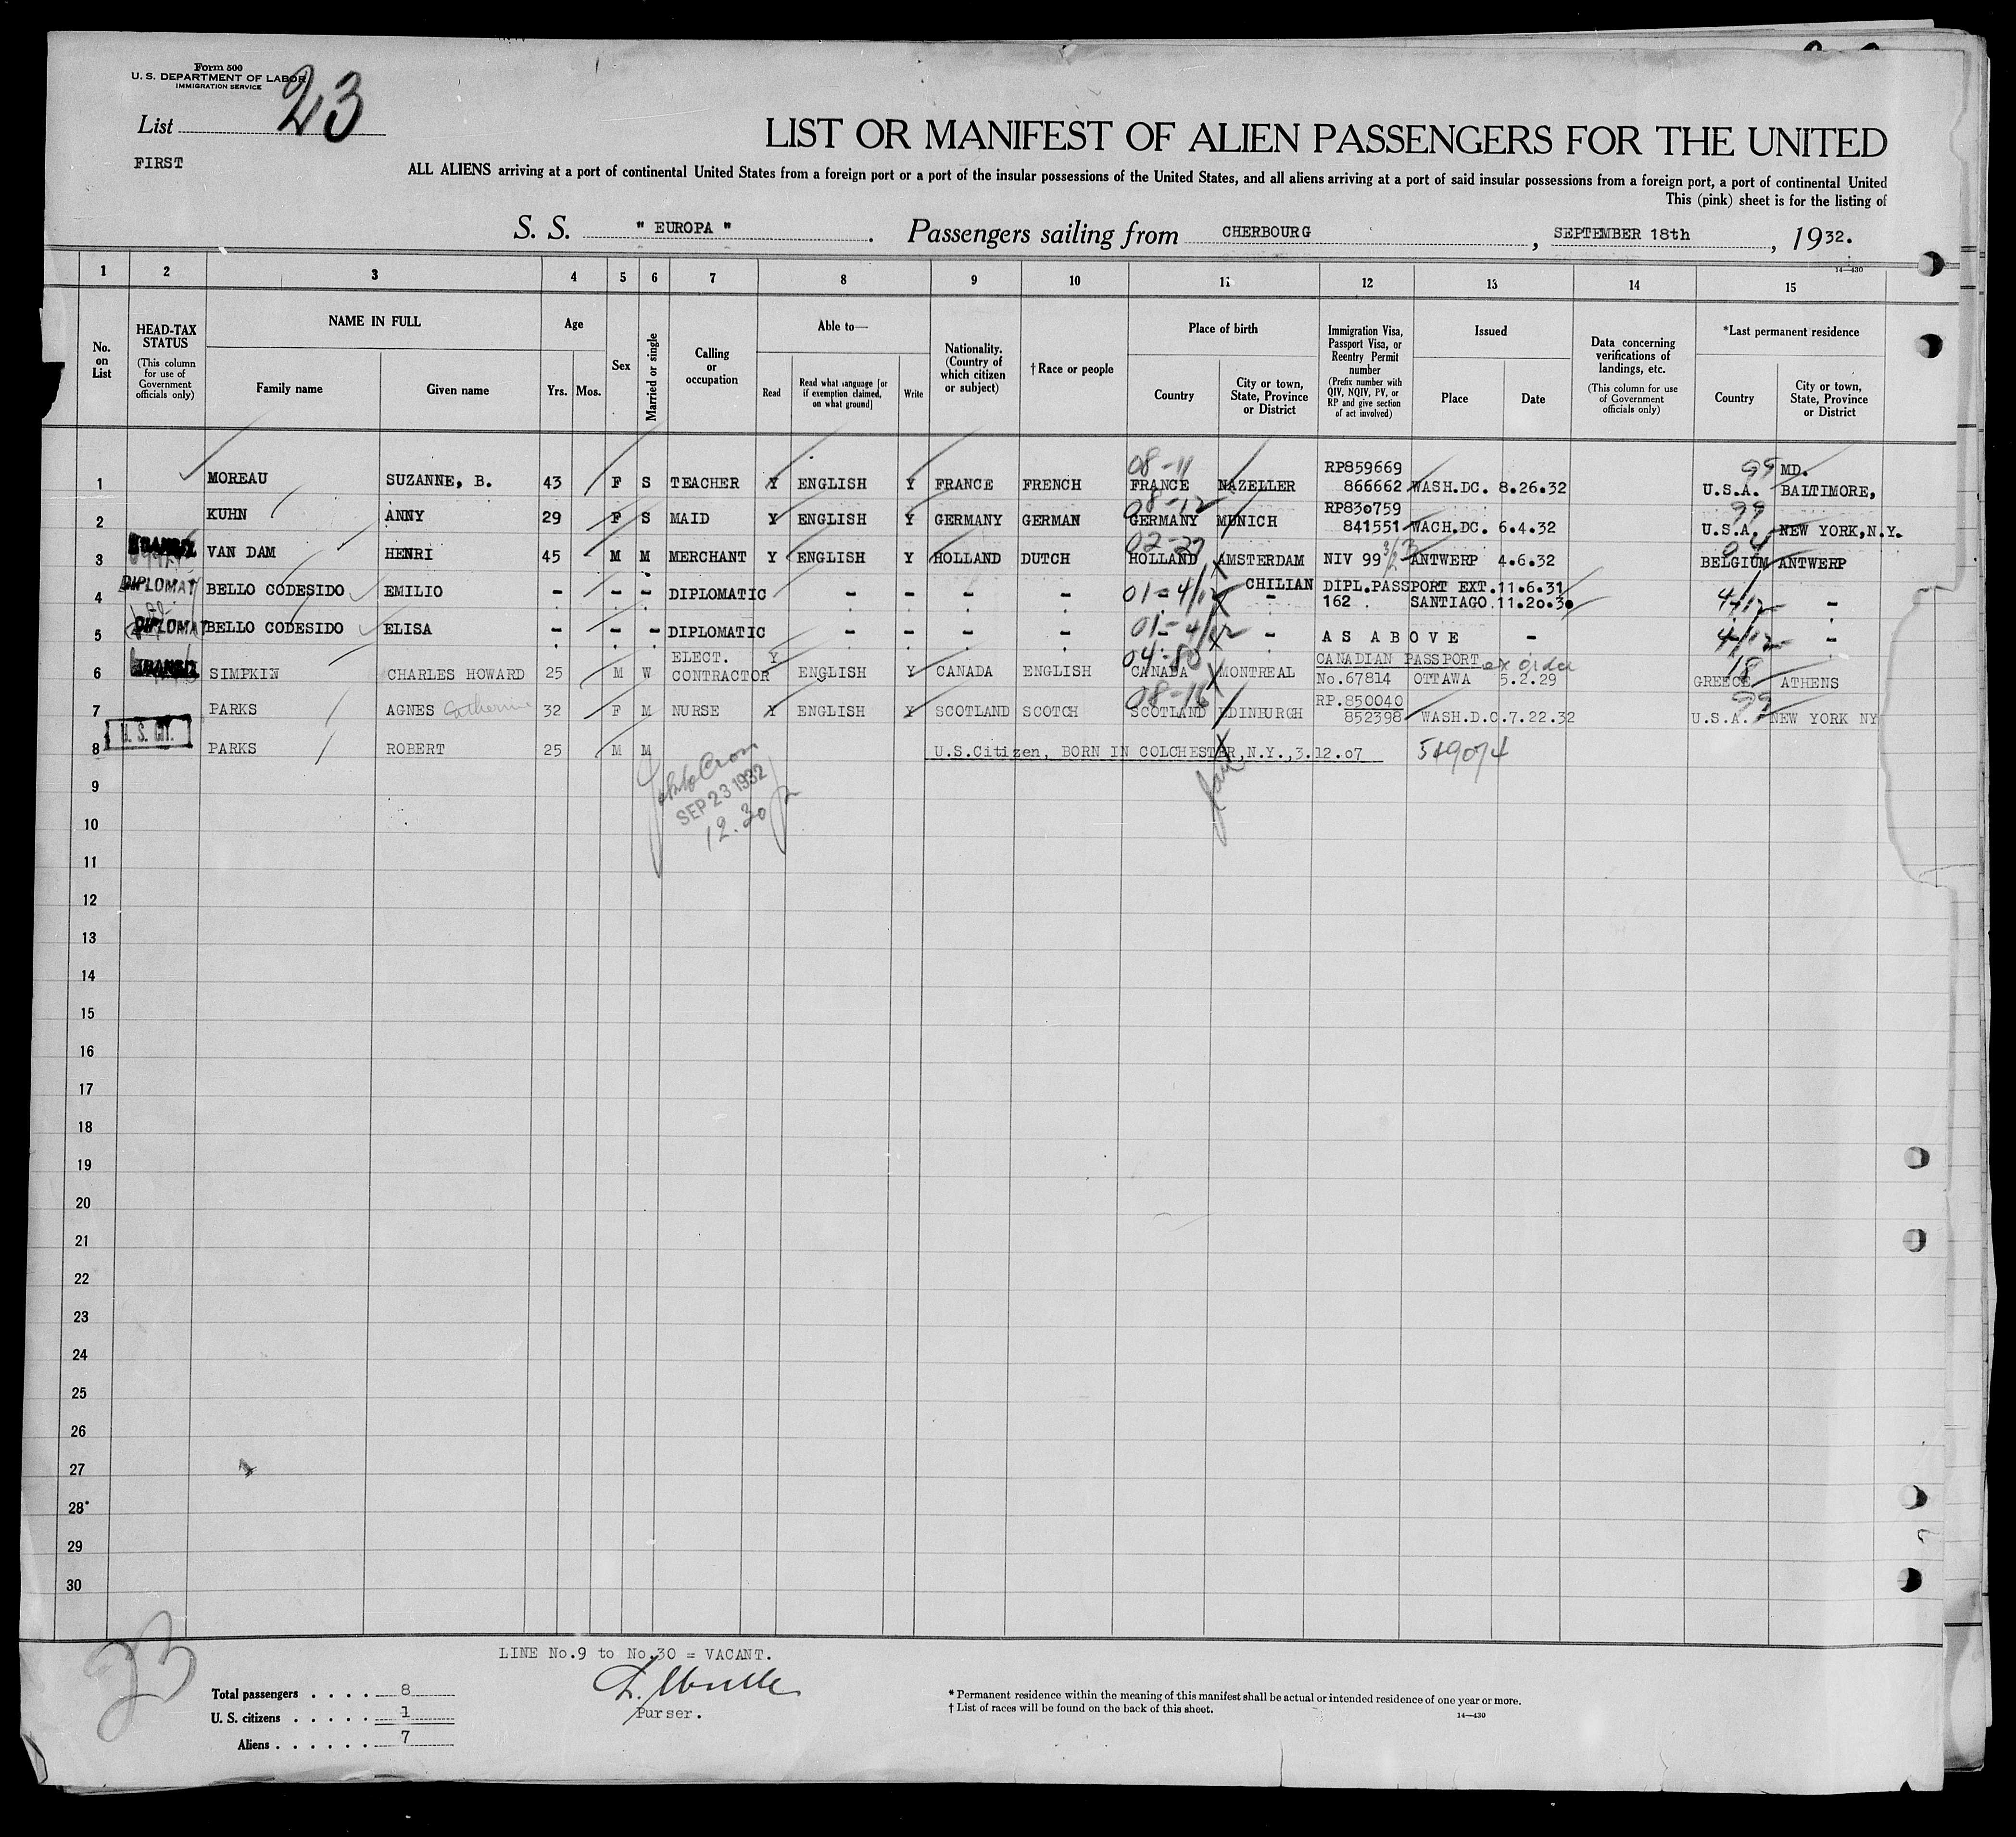 Form 500
U. S. DEPARTMENT OF LABOR
IMMIGRATION SERVICE
List 23
FIRST
LIST OR MANIFEST OF ALIEN PASSENGERS FOR THE UNITED
ALL ALIENS arriving at a port of continental United States from a foreign port or a port of the insular possessions of the United States, and all aliens arriving at a port of said insular possessions from a foreign port, a port of continental United
This (pink) sheet is for the listing of
S. S. " EUROPA ". Passengers sailing from CHERBOURG, SEPTEMBER 18th, 1932.
14—430
1 2 3 4 5 6 7 8 9 10 11 12 13 14 15
No. on List
HEAD-TAX STATUS
(This column for use of Government officials only)
NAME IN FULL
Family name
Given name
Age
Yrs. Mos.
Sex
Married or single
Calling or occupation
Able to—
Read
Read what language [or if exemption claimed, on what ground]
Write
Nationality. (Country of which citizen or subject)
†Race or people
Place of birth
Country
City or town, State, Province or District
Immigration Visa, Passport Visa, or Reentry Permit number
(Prefix number with QIV, NQIV, PV, or RP and give section of act involved)
Issued
Place
Date
Data concerning verifications of landings, etc.
(This column for use of Government officials only)
*Last permanent residence
Country
City or town, State, Province or District
08-11 RP859669 99 MD.
1 MOREAU SUZANNE, B. 43 F S TEACHER Y ENGLISH Y FRANCE FRENCH FRANCE NAZELLER 866662 WASH.DC. 8.26.32 U.S.A. BALTIMORE,
08-12 RP830759 99
2 KUHN ANNY 29 F S MAID Y ENGLISH Y GERMANY GERMAN GERMANY MUNICH 841551 WACH.DC. 6.4.32 U.S.A. NEW YORK,N.Y.
02-27
3 TRANSIT VAN DAM HENRI 45 M M MERCHANT Y ENGLISH Y HOLLAND DUTCH HOLLAND AMSTERDAM NIV 99 ANTWERP 4.6.32 BELGIUM ANTWERP
4 DIPLOMAT BELLO CODESIDO EMILIO - - - DIPLOMATIC - - - - 01-4/12 CHILIAN DIPL.PASSPORT EXT.11.6.31 4/12 -
162 SANTIAGO.11.20.30
5 DIPLOMAT BELLO CODESIDO ELISA - - - DIPLOMATIC - - - - 01-4/12 - AS ABOVE - 4/12 -
ELECT. Y 04-80 CANADIAN PASSPORT ex order 18
6 TRANSIT SIMPKIN CHARLES HOWARD 25 M W CONTRACTOR ENGLISH Y CANADA ENGLISH CANADA MONTREAL No.67814 OTTAWA 5.2.29 GREECE ATHENS
08-16 RP.850040 99
7 PARKS AGNES Catherine 32 F M NURSE Y ENGLISH Y SCOTLAND SCOTCH SCOTLAND EDINBURGH 852398 WASH.D.C.7.22.32 U.S.A. NEW YORK NY
U. S. CIT.
8 PARKS ROBERT 25 M M U.S.Citizen, BORN IN COLCHESTER,N.Y.,3.12.07 549074
SEP 23 1932
12.30
9
10
11
12
13
14
15
16
17
18
19
20
21
22
23
24
25
26
27
28
29
30
23
LINE No.9 to No.30 = VACANT.
Purser.
Total passengers . . . . 8
U. S. citizens . . . . . 1
Aliens . . . . . . 7
* Permanent residence within the meaning of this manifest shall be actual or intended residence of one year or more.
† List of races will be found on the back of this sheet.
14—430